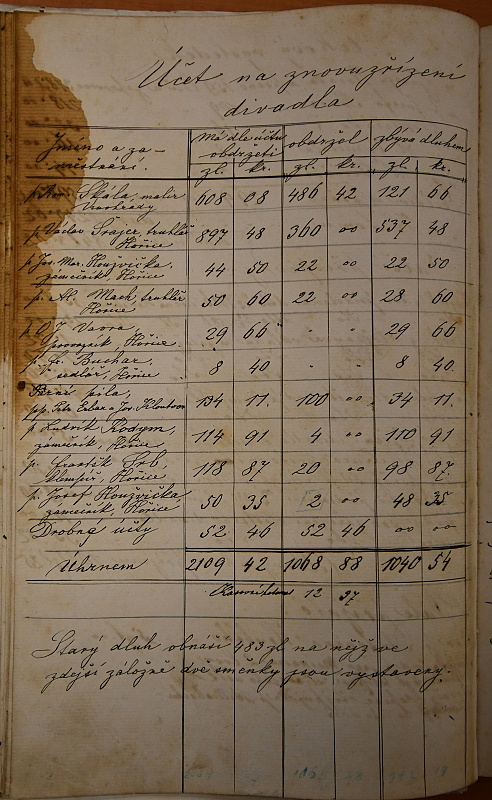 Účet na znovuzřízení
divadla
Jméno a za-
městnání. Má dle účtu obdržeti obdržel zbývá dluhem
zl. kr. zl. kr. zl. kr.
p. Skála, malíř 608 08 486 42 121 66
p. Václav Šrajer, truhlář
Hořice 897 48 360 00 537 48
p. Jos. Mar. Houžvička,
zámečník, Hořice 44 50 22 00 22 50
p. Al. Mach, truhlář
Hořice 50 60 22 00 28 60
p. J. Vavra,
provazník, Hořice 29 66 " " 29 66
p. Fr. Buchar,
sedlář, Hořice 8 40 " " 8 40
Parní pila,
pp. Petr Erben a Jos. Kloutvor 134 11. 100 00 34 11.
p. Ludvík Kodym,
zámečník, Hořice 114 91 4 00 110 91
p. František Srb,
klempíř, Hořice 118 87 20 00 98 87.
p. Josef Houžvička
zámečník, Hořice 50 35 2 00 48 35
Drobné účty 52 46 52 46 00 00
Úhrnem 2109 42 1068 88 1040 54
Kasovní hotov. 12 37
Starý dluh obnáší 483 zl na nějž ve
zdejší záložně dvě směnky jsou vystaveny.